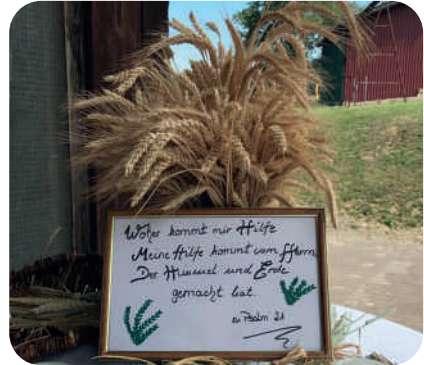 Woher kommt mir Hilfe
Meine Hilfe kommt vom Herrn,
Der Himmel und Erde
gemacht hat.
Psalm 21